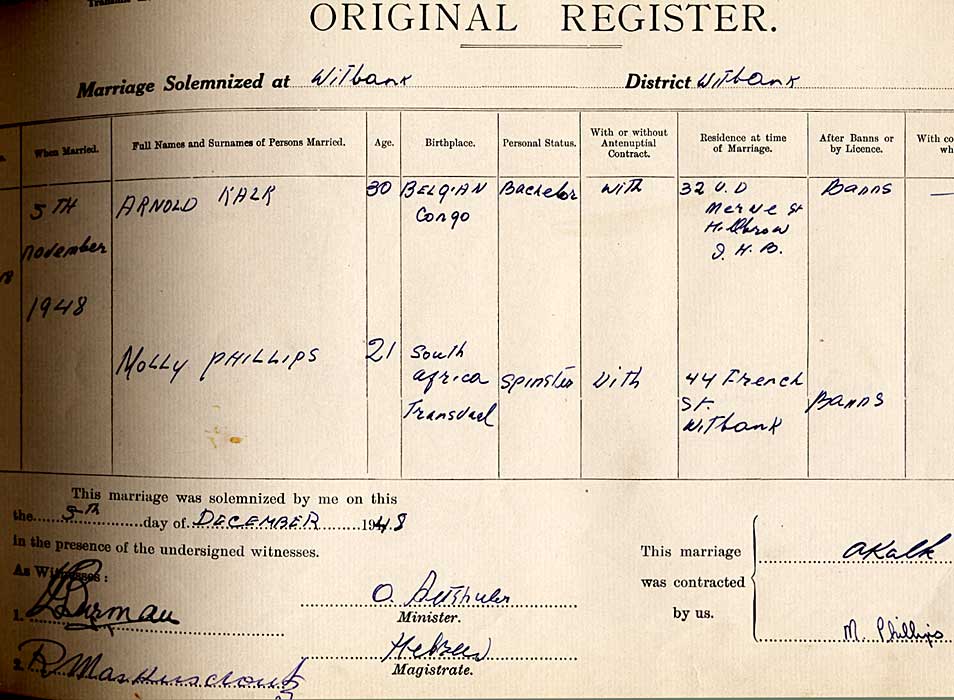 ORIGINAL REGISTER.
Marriage Solemnized at Witbank District Witbank
When Married. Full Names and Surnames of Persons Married. Age. Birthplace. Personal Status. With or without Antenuptial Contract. Residence at time of Marriage. After Banns or by Licence. With co
5TH november 1948 ARNOLD KALK 30 BELGIAN Congo Bachelor with 32 V.D Merwe St Hillbrow J.H.B. Banns —
MOLLY PHILLIPS 21 South Africa Transvaal Spinster With 44 French St. Witbank Banns
This marriage was solemnized by me on this
the 5th day of DECEMBER 1948
in the presence of the undersigned witnesses.
As Witnesses:
1.
O. Minister.
2. R Magistrate.
This marriage
was contracted
by us.
AKalk
M. Phillips